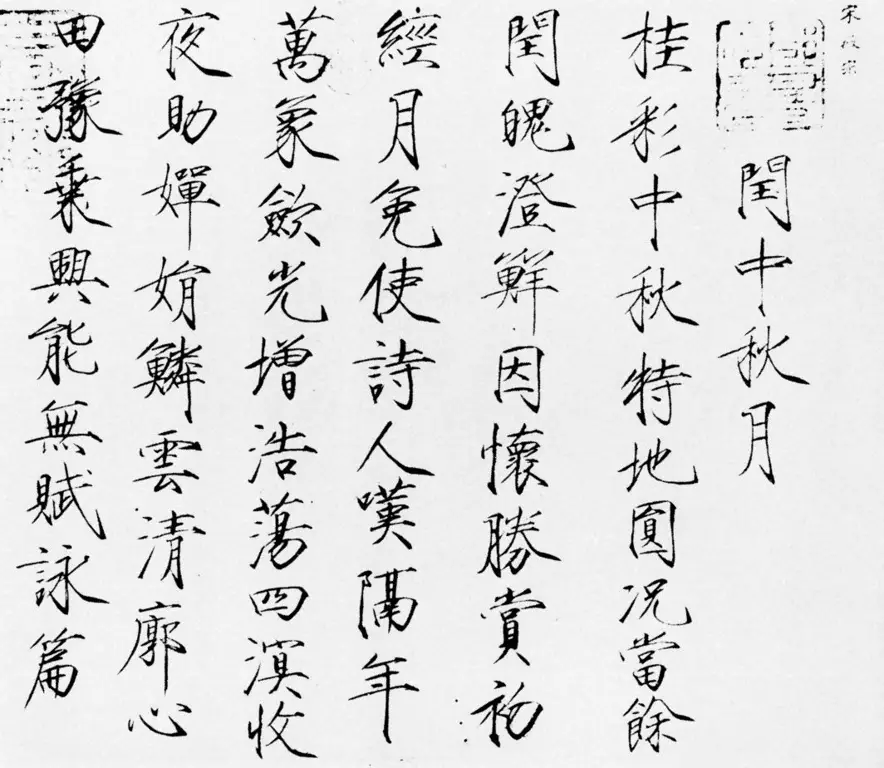 宋徽宗
閏中秋月
桂彩中秋特地圓况當餘
閏魄澄鮮因懷勝賞初
經月免使詩人嘆隔年
萬象歛光增浩蕩四溟收
夜助嬋娟鱗雲清廓心
田豫乘興能無賦詠篇